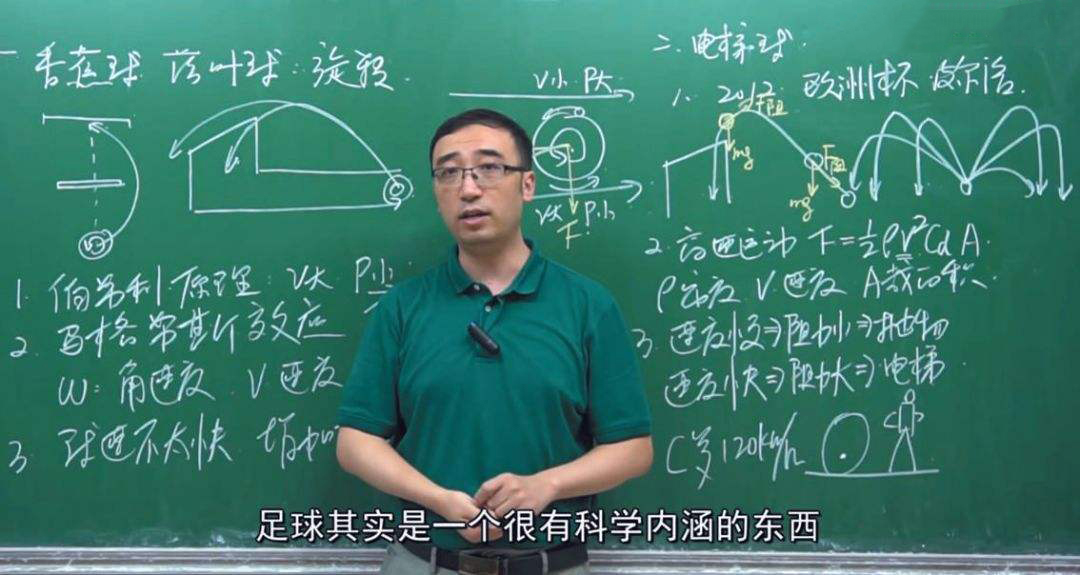 一 香蕉球 落叶球：旋转.
V小 P大
V大 P小
F
1. 伯努利原理：V大 P小
2. 马格努斯效应
W：角速度. V 速度
3. 球速不太快.
二. 电梯球.
1. 2012 欧洲杯 皮尔洛.
F阻
mg
F阻
mg
2. 高速运动 F=½ρV²CdA.
ρ密度 V 速度 A截面积
3. 速度慢⇒阻力小⇒抛物
速度快⇒阻力大⇒电梯
C罗 120km/h
足球其实是一个很有科学内涵的东西